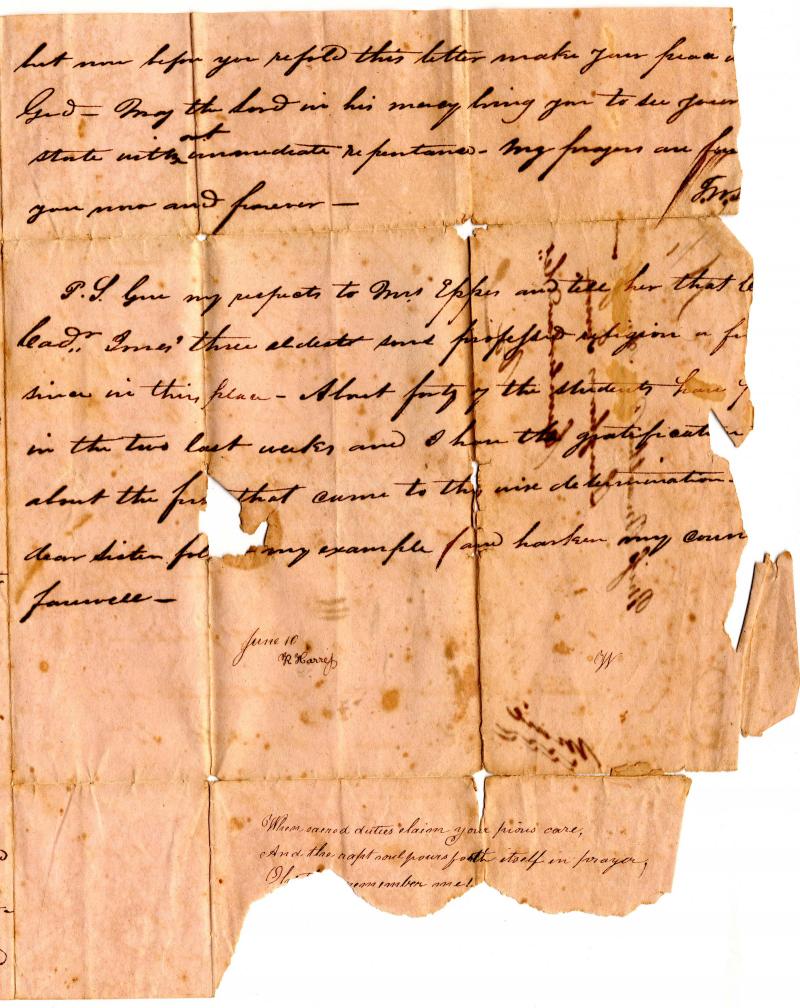 but now before you refold this letter make your peace
God — May the Lord in his mercy bring you to see your
out
state with immediate repentance — My prayers are for
you now and forever —
P.S. Give my respects to Mrs Eppes and tell her that
three eldest sons professed religion a
since in this place — About forty of the students have
in the two last weeks and I have the gratification
about the that came to this wise determination —
dear sister my example and harken my coun
farewell —
June 10
R Harress
W
When sacred duties claim your pious care,
And the rapt soul pours forth itself in prayer,
remember me!